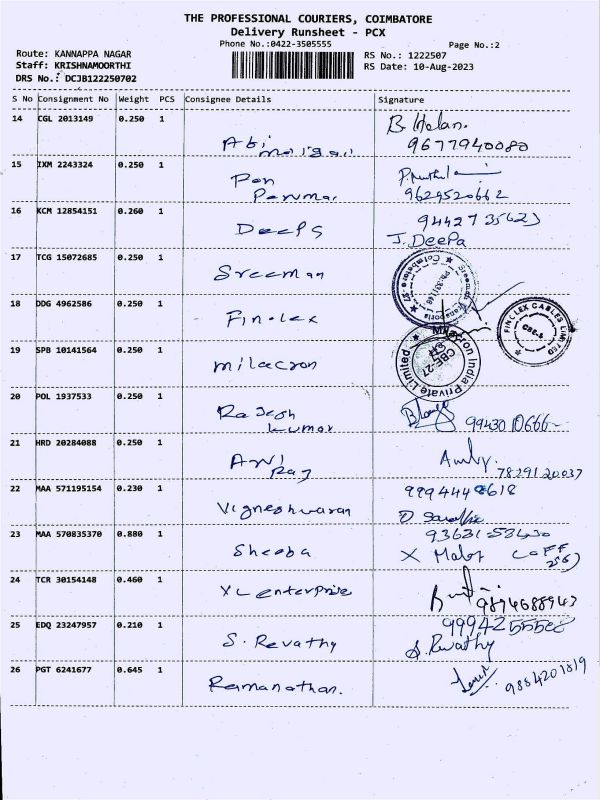 THE PROFESSIONAL COURIERS, COIMBATORE
Delivery Runsheet - PCX
Phone No.:0422-3505555
Page No.:2
Route: KANNAPPA NAGAR
RS No.: 1222507
Staff: KRISHNAMOORTHI
RS Date: 10-Aug-2023
DRS No.: DCJB122250702
S No Consignment No Weight PCS Consignee Details Signature
14 CGL 2013149 0.250 1
B. Helan.
Abi
9677940080
15 IXM 2243324 0.250 1
Pon
Perumal
9629520662
16 KCM 12854151 0.260 1
Deepa
J. Deepa
17 TCG 15072685 0.250 1
Sreeman
18 DDG 4962586 0.250 1
Finolex
FINOLEX CABLES LIMITED
CBE-6
19 SPB 10141564 0.250 1
milacron
Milacron India Private Limited
CBE-27
20 POL 1937533 0.250 1
Rajesh
kumar
9943010666
21 HRD 20284088 0.250 1
Raj
7829120037
22 MAA 571195154 0.230 1
Vigneshwaran
23 MAA 570835370 0.880 1
Sheeba
24 TCR 30154148 0.460 1
XL enterprise
9894688943
25 EDQ 23247957 0.210 1
S. Revathy
S. Revathy
26 PGT 6241677 0.645 1
Ramanathan.
9884201819